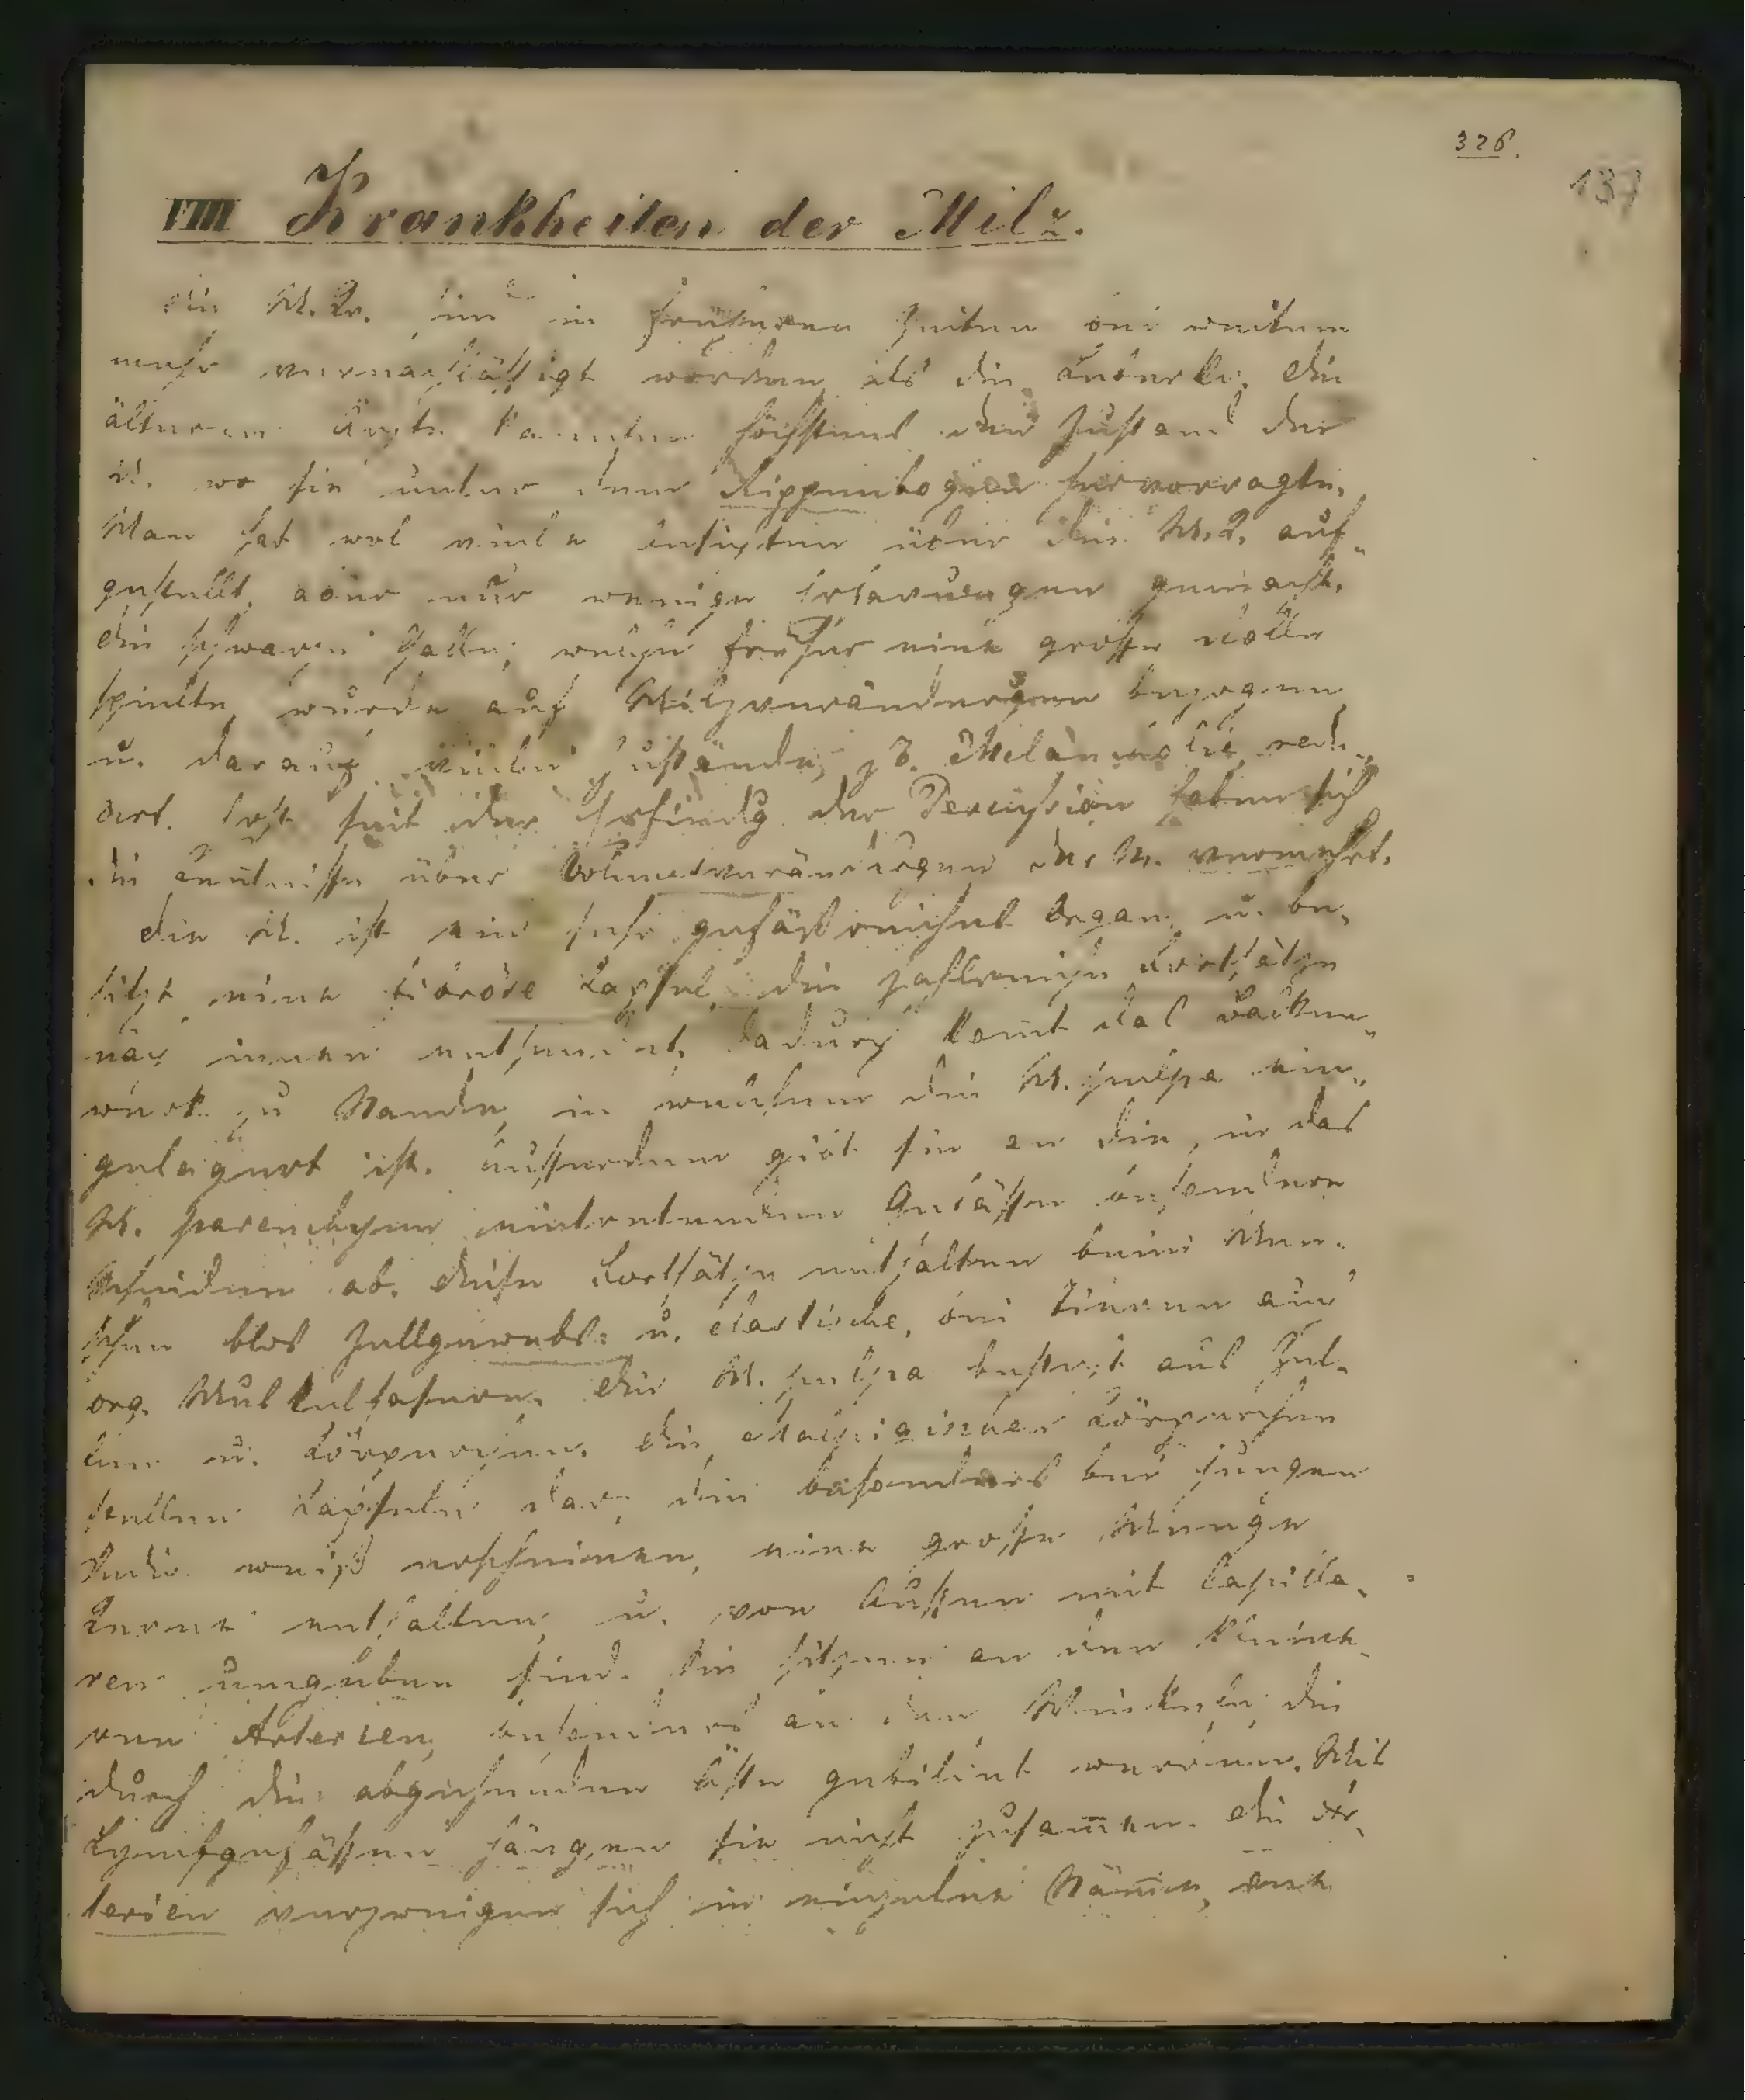 326.
137
VIII Krankheiten der Milz.
Die M.Kr. sind in früheren Zeiten bei weitem
mehr vernachlässigt worden als die Leberkr. Die
älteren Ärzte kannten höchstens den Zustand der
M. wo sie unter dem Rippenbogen hervorragte.
Man hat wol viele Ansichten über die M.K. auf-
gestellt, aber nur wenige Erfahrungen gemacht.
Die schwarze Galle, welche früher eine große Rolle
spielte, wurde auf Milzveränderungen bezogen
u. darauf viele Zustände, z B. Melancholie, redu-
cirt. Erst seit der Erfindg der Percussion haben sich
die Kenntnisse über Volumsveränderungen der M. vermehrt.
Die M. ist ein sehr gefäßreiches Organ u. be-
sitzt eine fibröse Kapsel, die zahlreiche Fortsätze
nach innen entsendet, dadurch komt das Balken-
werk zu Stande, in welchem die M.pulpa ein-
gelagert ist. Ausserdem gibt sie an die, in das
M.parenchym eintretenden Gefässe besondere
Scheiden ab. Diese Fortsätze enthalten beim Men-
schen blos Zellgewebs- u. elastische, bei Tieren auch
org. Muskelfasern. Die M.pulpa besteht aus Zel-
len u. Körperchen. Die Malpighischen Körperchen
stellen Kapseln dar, die besonders bei jungen
Indiv. weiß erscheinen, eine große Menge
Kerne enthalten, u. von Aussen mit Capilla-
ren umgeben sind. Sie sitzen an den kleine-
ren Arterien, besonders an den Winkeln, die
durch die abgehenden Äste gebildet werden. Mit
Lymfgefässen hängen sie nicht zusam̅en. Die Ar-
terien verzweigen sich in einzelne Stäm̅e, ohne